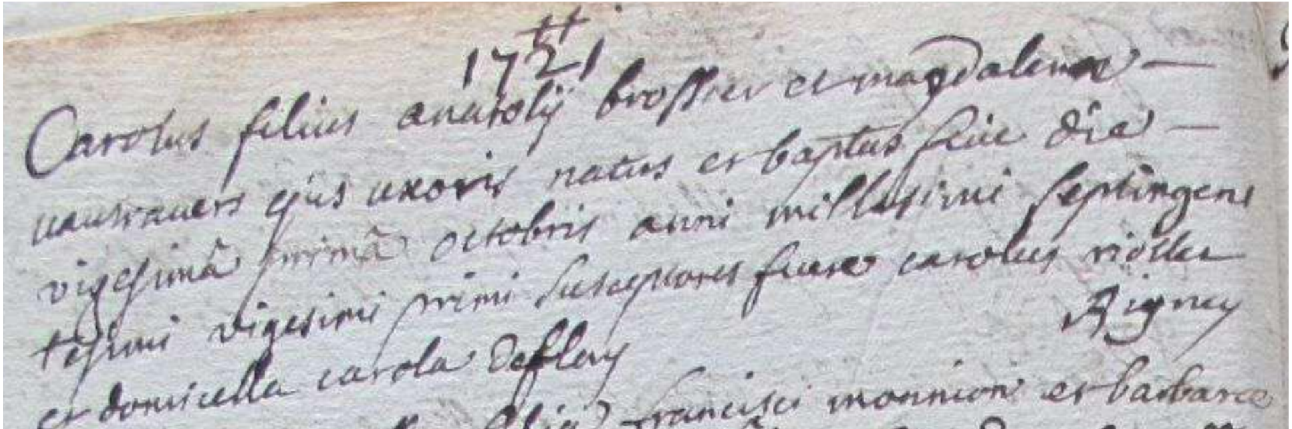 1721
Carolus filius anatolij brossier et magdalenae
vautravers ejus uxoris natus et baptus fuit die
vigesimâ primâ octobris anni millesimi septingen
tesimi vigesimi primi susceptores fuere carolus
et domicella carola Rigney
francisci monnion et barbarae